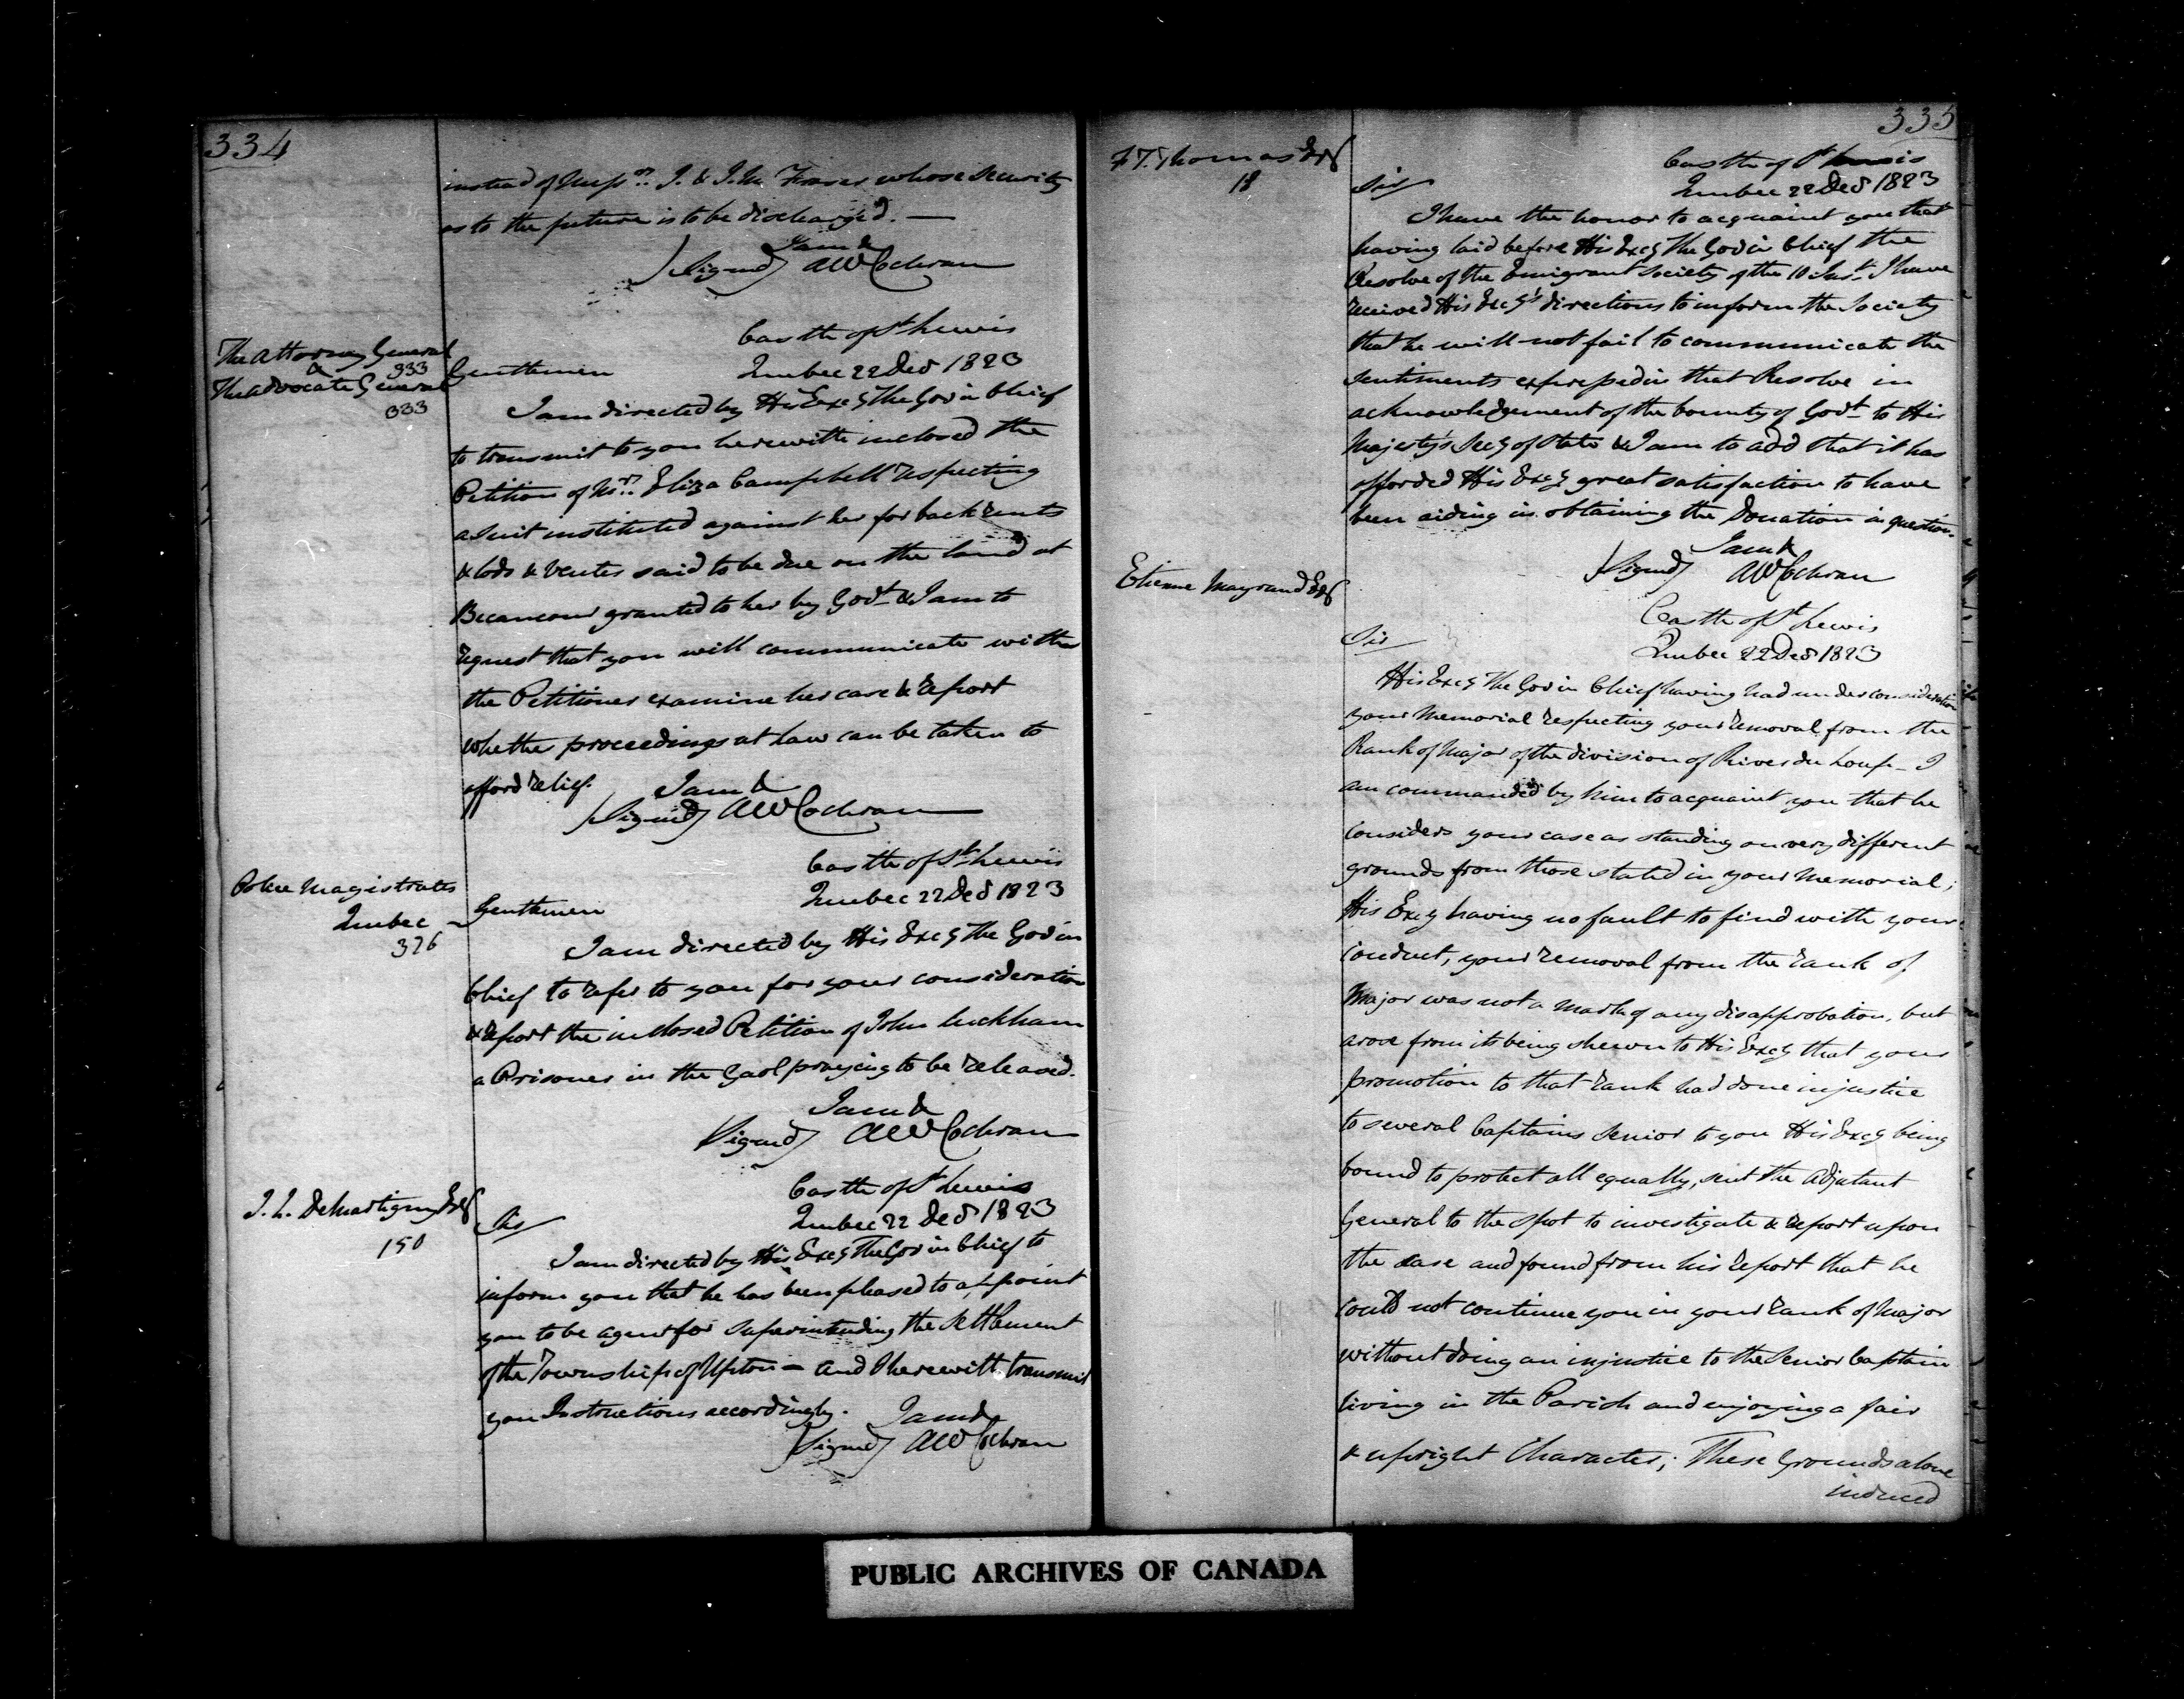 334
instead of Messrs. J. & J. M. Fraser whose security
as to the future is to be discharged. —
I am &
Signed A W Cochran
The Attorney General
333
&
The Advocate General
333
Castle of St Lewis
Gentlemen Quebec 22 Decr 1823
I am directed by His Excy The Gov in Chief
to transmit to you herewith inclosed the
Petition of Mrs. Eliza Campbell respecting
a suit instituted against her for back rents
& lods & ventes said to be due on the land at
Becancour granted to her by Govt & I am to
request that you will communicate with
the Petitioner examine her case & report
whether proceedings at Law can be taken to
afford relief. I am &
Signed A W Cochran
Police Magistrates
Quebec
376
Castle of St Lewis
Gentlemen Quebec 22 Decr 1823
I am directed by His Excy The Gov in
Chief to refer to you for your consideration
& report the inclosed Petition of John Luckham
a Prisoner in the Gaol praying to be released.
I am &
Signed A W Cochran
J. L. DeMartigny Esq
150
Castle of St Lewis
Sir Quebec 22 Decr 1823
I am directed by His Excy The Gov in Chief to
inform you that he has been pleased to appoint
you to be agent for superintending the settlement
of the Township of Upton — and I herewith transmit
you Instructions accordingly.
I am &
Signed A W Cochran
335
F T. Thomas Esq
18
Castle of St Lewis
Sir Quebec 22 Decr 1823
I have the honor to acquaint you that
having laid before His Excy The Gov in Chief the
Resolve of the Emigrant Society of the 10 Inst. I have
received His Excy's directions to inform the Society
that he will not fail to communicate the
sentiments expressed in that Resolve in
acknowledgement of the bounty of Govt to His
Majesty's Secy of State & I am to add that it has
afforded His Excy great satisfaction to have
been aiding in obtaining the Donation in question.
I am &
Signed A W Cochran
Etienne Mayrand Esq
Castle of St Lewis
Sir Quebec 22 Decr 1823
His Excy The Gov in Chief having had under consideration
your Memorial respecting your removal from the
Rank of Major of the division of River du Loup — I
am commanded by him to acquaint you that he
considers your case as standing on very different
grounds from those stated in your Memorial;
His Excy having no fault to find with your
conduct, your removal from the rank of
Major was not a mark of any disapprobation, but
arose from its being shewn to His Excy that your
promotion to that rank had done injustice
to several Captains Senior to you His Excy being
bound to protect all equally, sent the Adjutant
General to the spot to investigate & report upon
the case and found from his report that he
could not continue you in your rank of Major
without doing an injustice to the Senior Captain
living in the Parish and enjoying a fair
& upright Character; These Grounds alone
induced
PUBLIC ARCHIVES OF CANADA